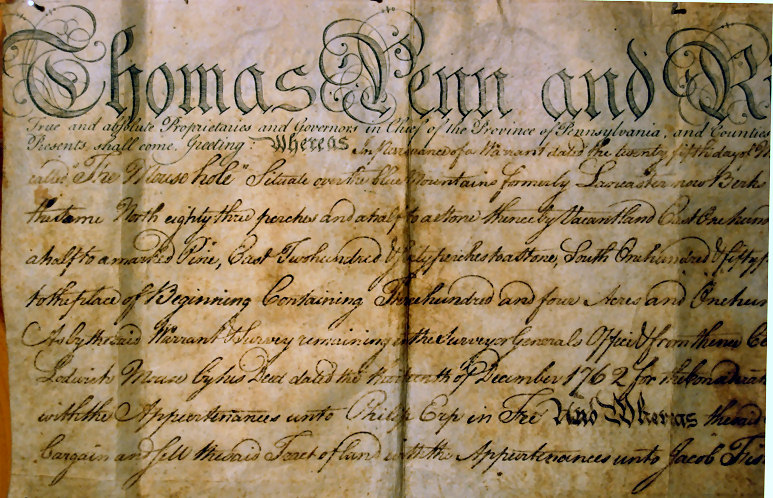 Thomas Penn and Ri
True and absolute Proprietaries and Governors in Chief of the Province of Pennsylvania, and Counties
Presents, shall come, Greeting Whereas In Pursuance of a Warrant dated the twenty fifth day of
called "The Mouse hole" Situate over the blue Mountains formerly Lancaster now Berks
the same North eighty three perches and a half to a stone thence by Vacant land East One hund
a half to a marked Pine, East Two hundred & sixty perches to a Stone, South One hundred & fifty
to the place of Beginning Containing Three hundred and four Acres and One hun
As by the said Warrant & Survey remaining in the Surveyor Generals Office & from thence
Lodwick Mouse by his Deed dated the thirteenth of December 1762 for the
with the Appurtenances unto Philip Erp in Fee And Whereas the said
Bargain and sell the said Tract of land with the Appurtenances unto Jacob